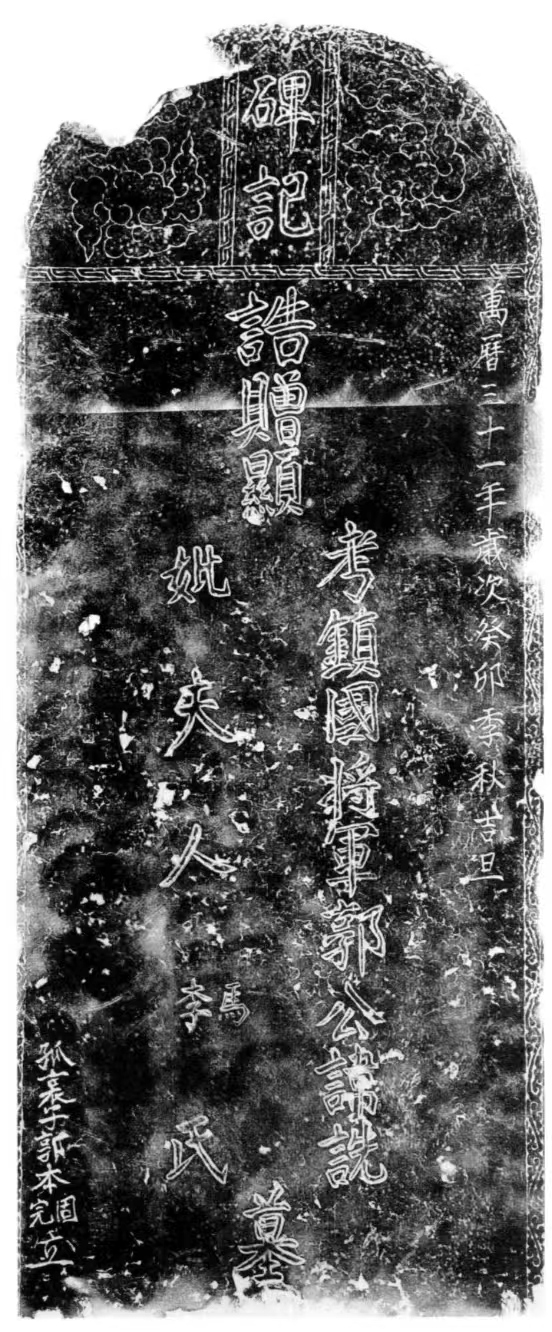 碑記
萬曆三十一年歲次癸卯季秋吉旦
誥贈顯
考鎮國將軍郭公諱詵
妣夫人馬李氏
墓
孤哀子郭本固完立